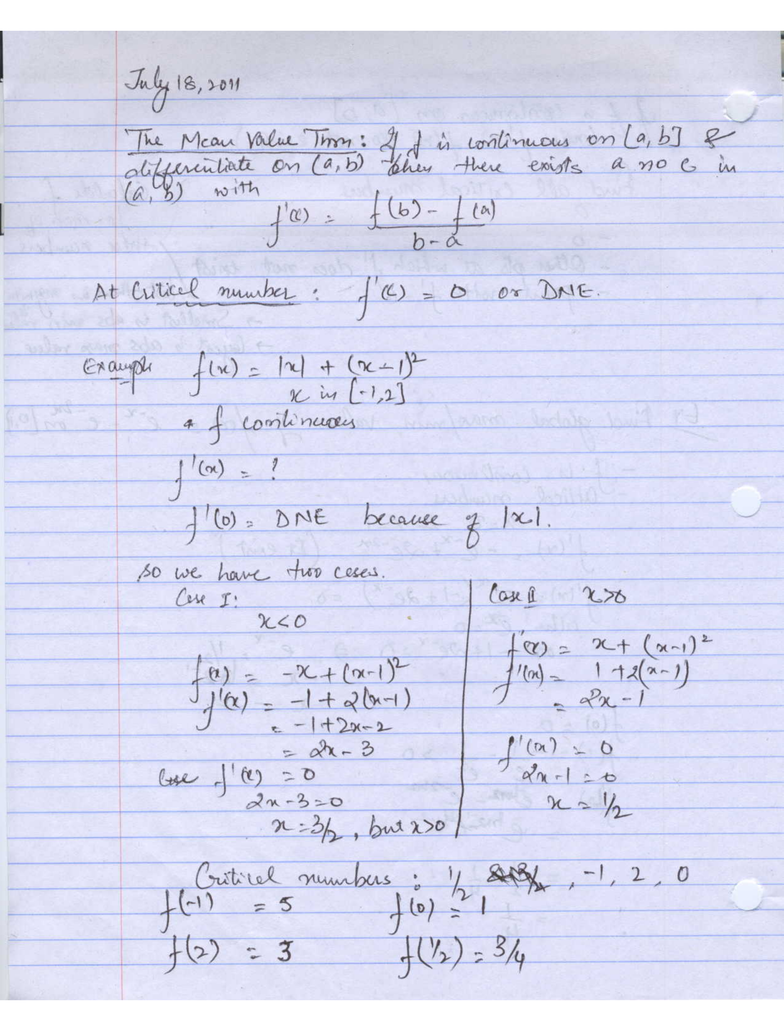 July 18, 2011
The Mean Value Thm : If f is continuous on [a, b] &
differentiate on (a, b) then there exists a no C in
(a, b) with
f'(c) = f(b) - f(a) / b - a
At Critical number : f'(c) = 0 or DNE.
Example f(x) = |x| + (x-1)²
x in [-1,2]
f continuous
f'(x) = ?
f'(0) = DNE because of |x|.
so we have two cases.
Case I:
x<0
f(x) = -x + (x-1)²
f'(x) = -1 + 2(x-1)
= -1+2x-2
= 2x-3
Case f'(x) = 0
2x-3=0
x = 3/2, but x>0
Case II x>0
f(x) = x + (x-1)²
f'(x) = 1 + 2(x-1)
= 2x-1
f'(x) = 0
2x-1=0
x = 1/2
Critical numbers : 1/2 , -1, 2, 0
f(-1) = 5 f(0) = 1
f(2) = 3 f(1/2) = 3/4